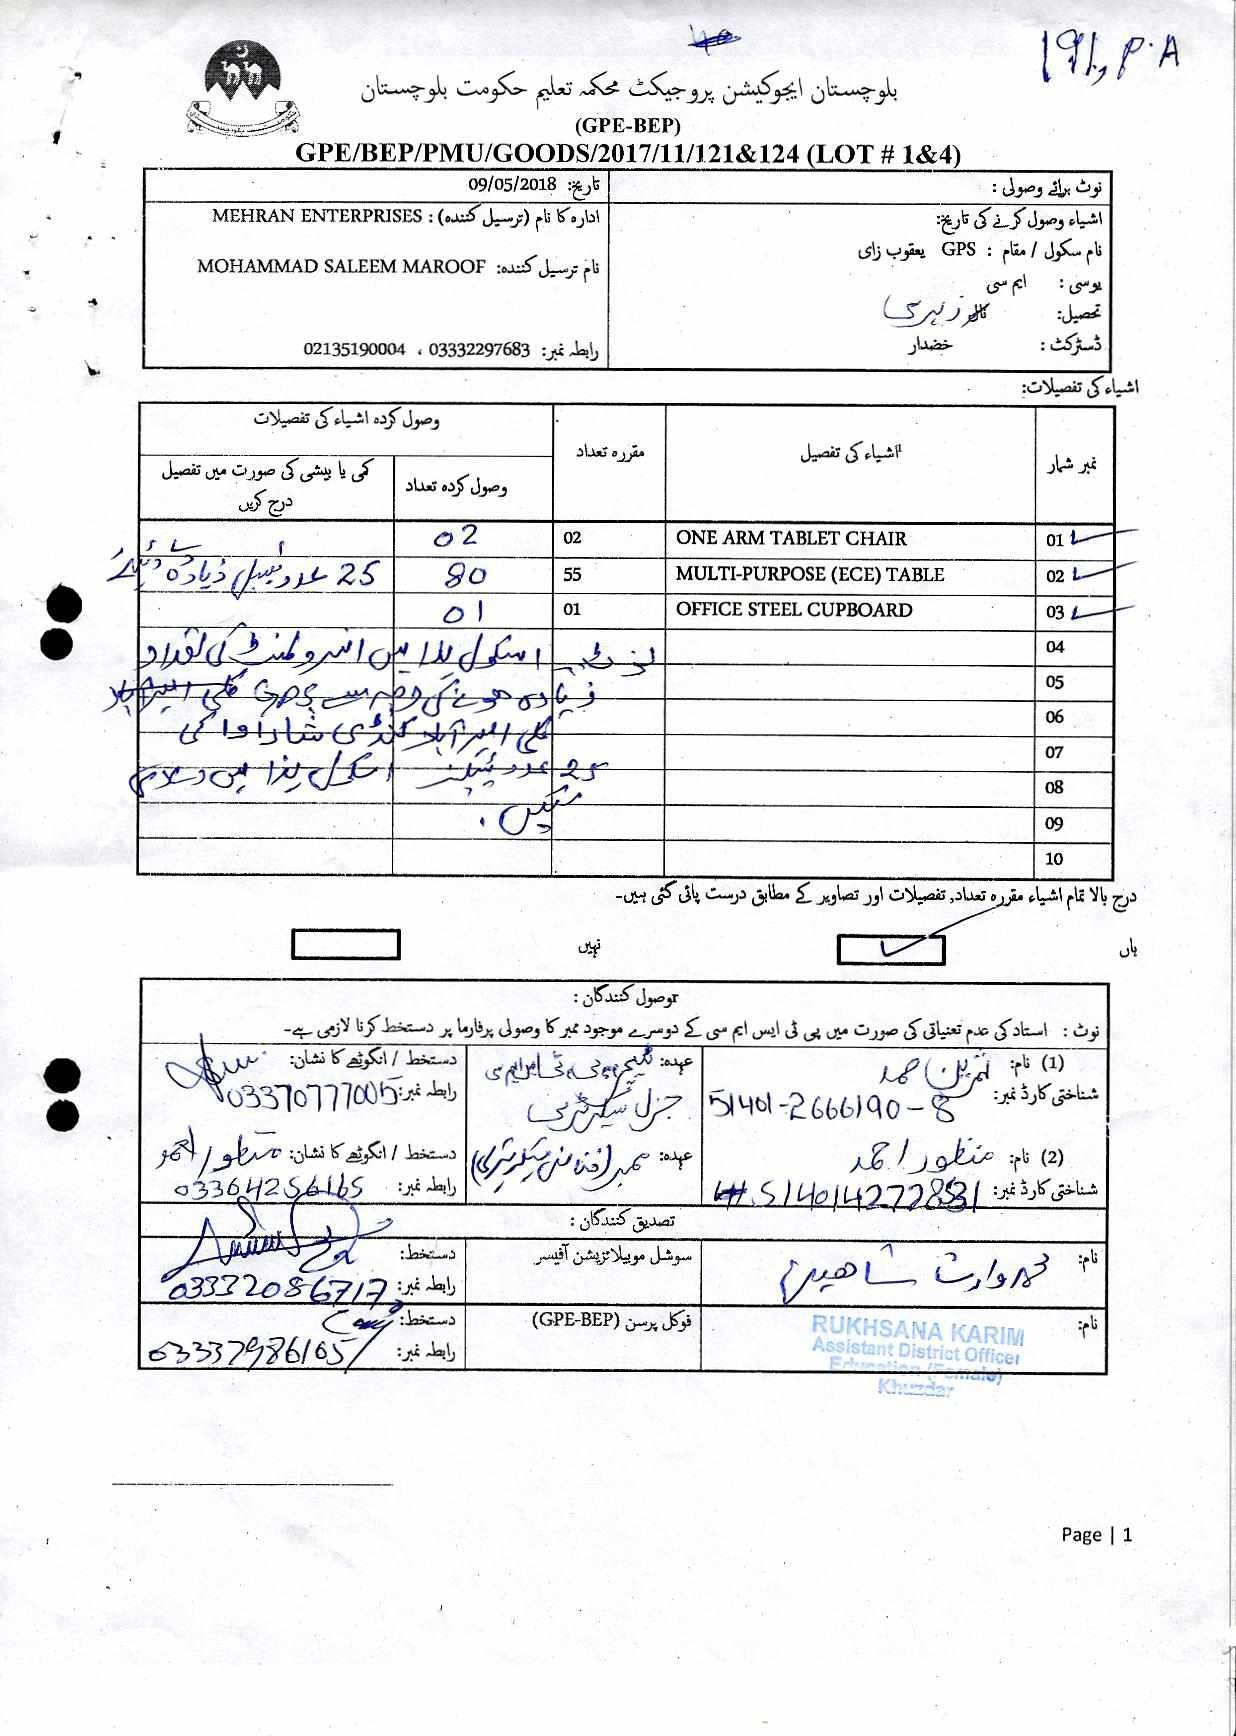 191, P.A
بلوچستان ایجوکیشن پروجیکٹ محکمہ تعلیم حکومت بلوچستان
(GPE-BEP)
GPE/BEP/PMU/GOODS/2017/11/121&124 (LOT # 1&4)
نوٹ برائے وصولی :
تاریخ: 09/05/2018
اشیاء وصول کرنے کی تاریخ:
ادارہ کا نام (ترسیل کنندہ) : MEHRAN ENTERPRISES
نام سکول / مقام : GPS یعقوب زای
نام ترسیل کنندہ: MOHAMMAD SALEEM MAROOF
یوسی : ایم سی
تحصیل: زہری
ڈسٹرکٹ : خضدار
رابطہ نمبر: 03332297683 ، 02135190004
اشیاء کی تفصیلات:
نمبر شمار اشیاء کی تفصیل مقررہ تعداد وصول کردہ اشیاء کی تفصیلات
وصول کردہ تعداد کمی یا بیشی کی صورت میں تفصیل درج کریں
01 ONE ARM TABLET CHAIR 02 02
02 MULTI-PURPOSE (ECE) TABLE 55 80 25 عدد ٹیبل زیادہ دیئے
03 OFFICE STEEL CUPBOARD 01 01
04
نوٹ: اسکول ہذا میں انرولمنٹ کی تعداد
05
زیادہ ہونے کی وجہ سے GPS کلی
06
کلی امیر آباد
07
25 عدد اسکول ہذا میں
08
09
10
درج بالا تمام اشیاء مقررہ تعداد, تفصیلات اور تصاویر کے مطابق درست پائی گئی ہیں۔
ہاں
نہیں
وصول کنندگان :
نوٹ : استاد کی عدم تعیناتی کی صورت میں پی ٹی ایس ایم سی کے دوسرے موجود ممبر کا وصولی پرفارما پر دستخط کرنا لازمی ہے۔
(1) نام: احمد
عہدہ: جنرل سیکرٹری
دستخط / انگوٹھے کا نشان:
شناختی کارڈ نمبر: 51401-2666190-8
رابطہ نمبر: 03370777005
(2) نام: منظور احمد
عہدہ: ممبر (فنانس سیکریٹری)
دستخط / انگوٹھے کا نشان: منظور احمد
شناختی کارڈ نمبر:
رابطہ نمبر: 03364256165
تصدیق کنندگان :
نام: محمد وارث شاھین
سوشل موبیلائزیشن آفیسر
دستخط:
رابطہ نمبر: 03332086717
نام:
فوکل پرسن (GPE-BEP)
دستخط:
رابطہ نمبر: 03337986105
RUKHSANA KARIM
Assistant District Officer
Education (Female)
Khuzdar
Page | 1